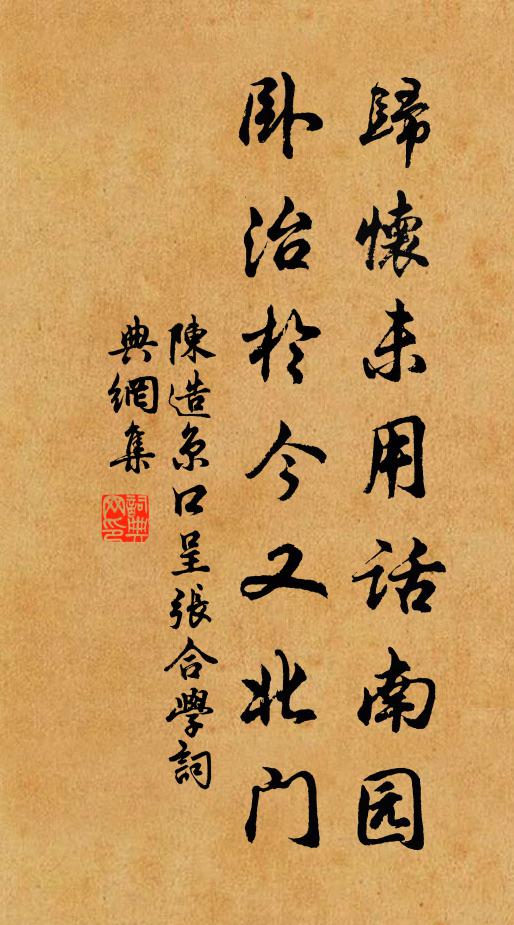 歸懷未用話南园
卧治於今又北门
陳造京口呈張合學詞
典網集
詞典網印